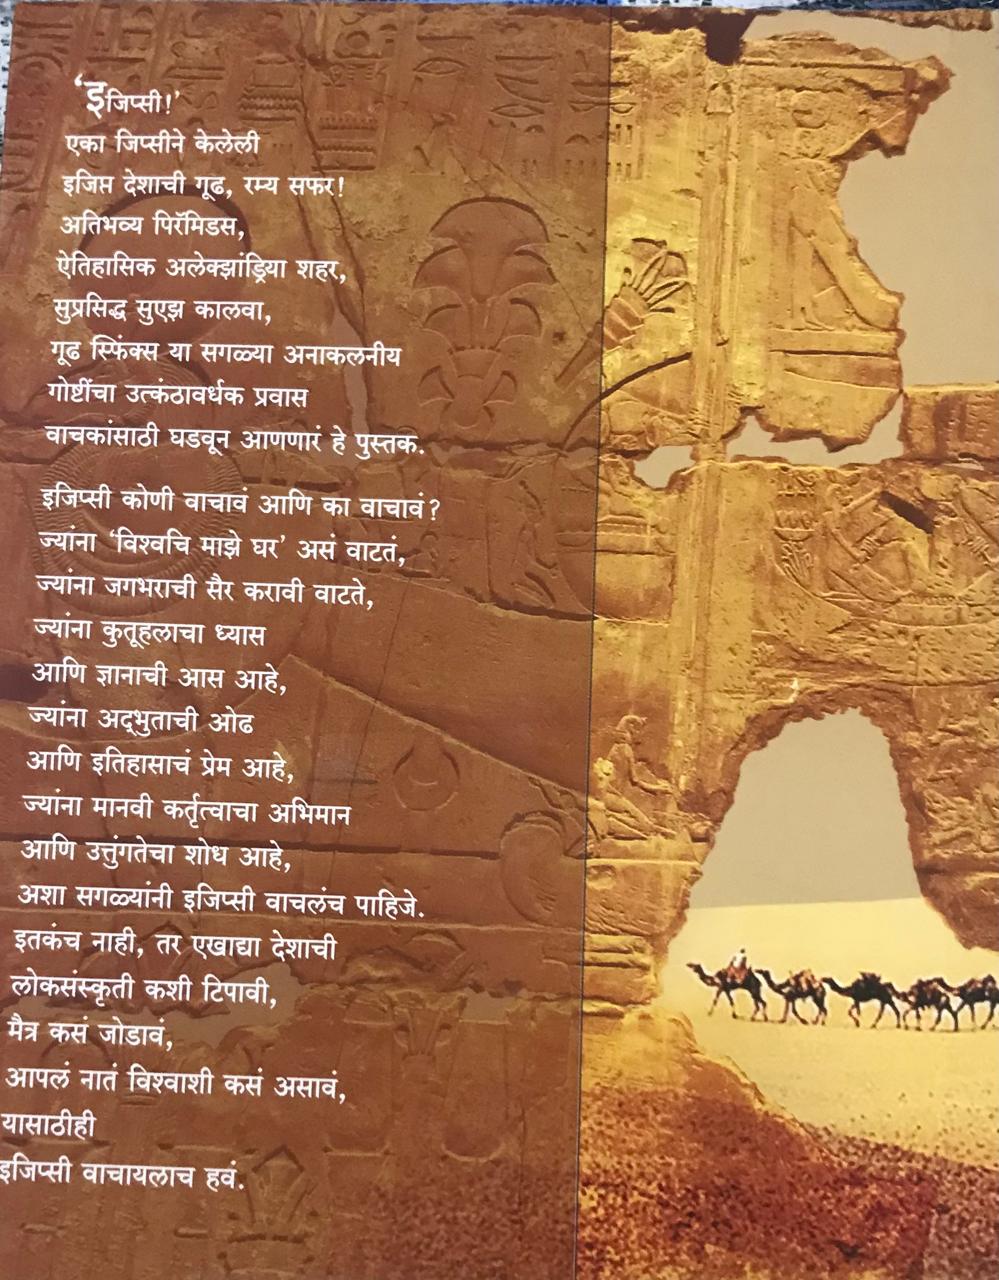 ‘इजिप्सी!’
एका जिप्सीने केलेली
इजिप्त देशाची गूढ, रम्य सफर!
अतिभव्य पिरॅमिडस,
ऐतिहासिक अलेक्झांड्रिया शहर,
सुप्रसिद्ध सुएझ कालवा,
गूढ स्फिंक्स या सगळ्या अनाकलनीय
गोष्टींचा उत्कंठावर्धक प्रवास
वाचकांसाठी घडवून आणणारं हे पुस्तक.
इजिप्सी कोणी वाचावं आणि का वाचावं?
ज्यांना ‘विश्वचि माझे घर’ असं वाटतं,
ज्यांना जगभराची सैर करावी वाटते,
ज्यांना कुतूहलाचा ध्यास
आणि ज्ञानाची आस आहे,
ज्यांना अद्‌भुताची ओढ
आणि इतिहासाचं प्रेम आहे,
ज्यांना मानवी कर्तृत्वाचा अभिमान
आणि उत्तुंगतेचा शोध आहे,
अशा सगळ्यांनी इजिप्सी वाचलंच पाहिजे.
इतकंच नाही, तर एखाद्या देशाची
लोकसंस्कृती कशी टिपावी,
मैत्र कसं जोडावं,
आपलं नातं विश्वाशी कसं असावं,
यासाठीही
इजिप्सी वाचायलाच हवं.